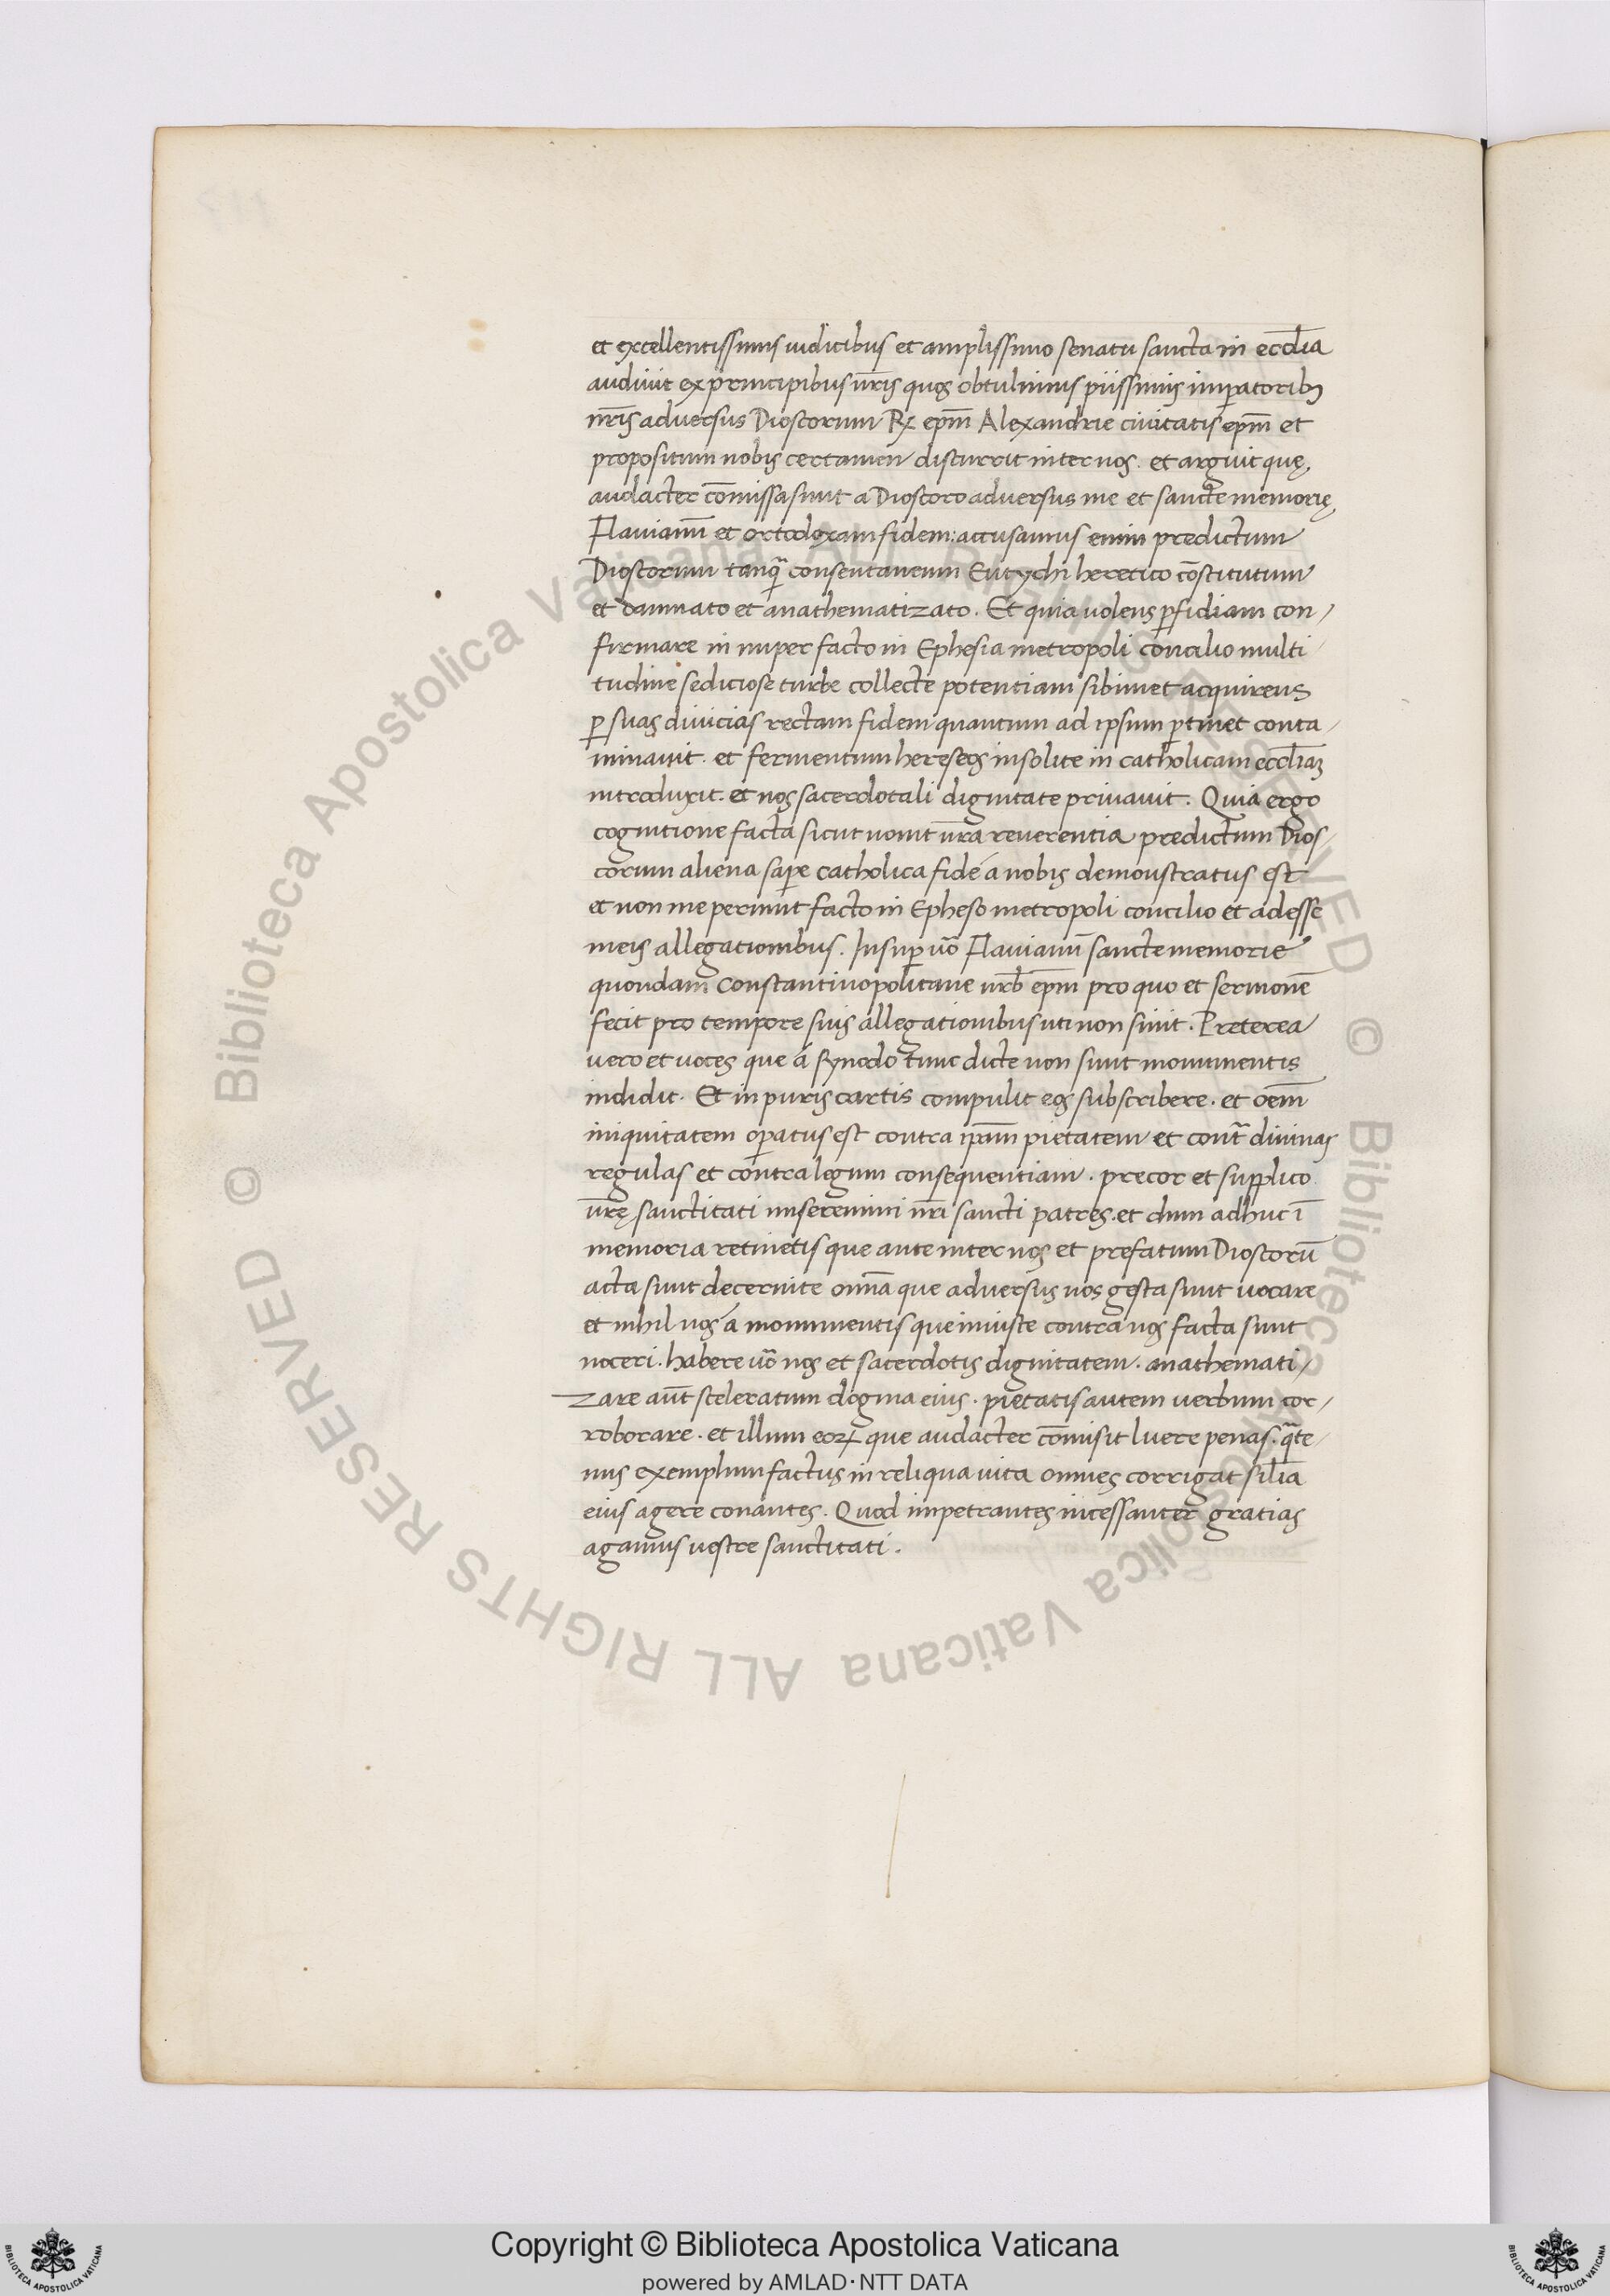 et excellentissimis iudicibus et amplissimo senatu sancta in eccl̄ia
audiuit ex principibus nr̄is quos obtulimus piissimis imꝑatoribꝫ
nr̄is adversus Dioscorum Rx ep̄m Alexandrie ciuitatis ep̄m et
propositum nobis certamen discurrit inter nos. et arguit quę
audacter cōmissa sunt a Dioscoro adversus me et sancte memorię
Flavianū et ortodoxam fidem: accusamus enim predictum
Dioscorum tanq̄ consentaneum Eutychi heretico cōstitutum
et damnato et anathematizato. Et quia uolens ꝑfidiam con/
firmare in nuper facto in Ephesia metropoli concilio multi
tudine sediciose turbe collecte potentiam sibimet acquirens
ꝑ suas diuicias rectam fidem quantum ad ipsum ꝑtinet conta/
minauit. et fermentum hereseos insolite in catholicam eccl̄iaꝫ
introduxit. et nos sacerdotali dignitate priuauit. Quia ergo
cognitione facta sicut nouit vr̄a reuerentia predictum Dios/
corum aliena saꝑe catholica fidé á nobis demonstratus est
et non me permit facto in Epheso metropoli concilio et adesse
meis allegationibus. Insuꝑ uō Flauianū sancte memorie
quondam Constantinopolitane urb̄ ep̄m pro quo et sermonē
fecit pro tempore suis allegationibus uti non sinit. Preterea
vero et uoces que á synodo tunc dicte non sunt monumentis
indidit. Et in puris cartis compulit eos subscribere. et oēm
iniquitatem oꝑatus est contra ip̄am pietatem et cont̄ diuinas
regulas et contra legum consequentiam. precor et supplico
vr̄ę sanctitati miseremini nr̄i sancti patres. et dum adhuc ī
memoria retinetis que ante inter nos et prefatum Dioscorū
acta sunt decernite om̄a que adversus nos gesta sunt uocare
et nihil nos á monumentis que iniuste contra nos facta sunt
noceri. habere uō nos et sacerdotis dignitatem. anathemati/
zare aūt sceleratum dogma eius. pietatis autem verbum cor/
roborare. et illum eoꝝ que audacter cōmisit luere penas. q̄te/
nus exemplum factus in reliqua uita omnes corrigat sil̄ia
eius agere conantes. Quod impetrantes incessanter gratias
agamus vestre sanctitati.
Copyright © Biblioteca Apostolica Vaticana
powered by AMLAD·NTT DATA